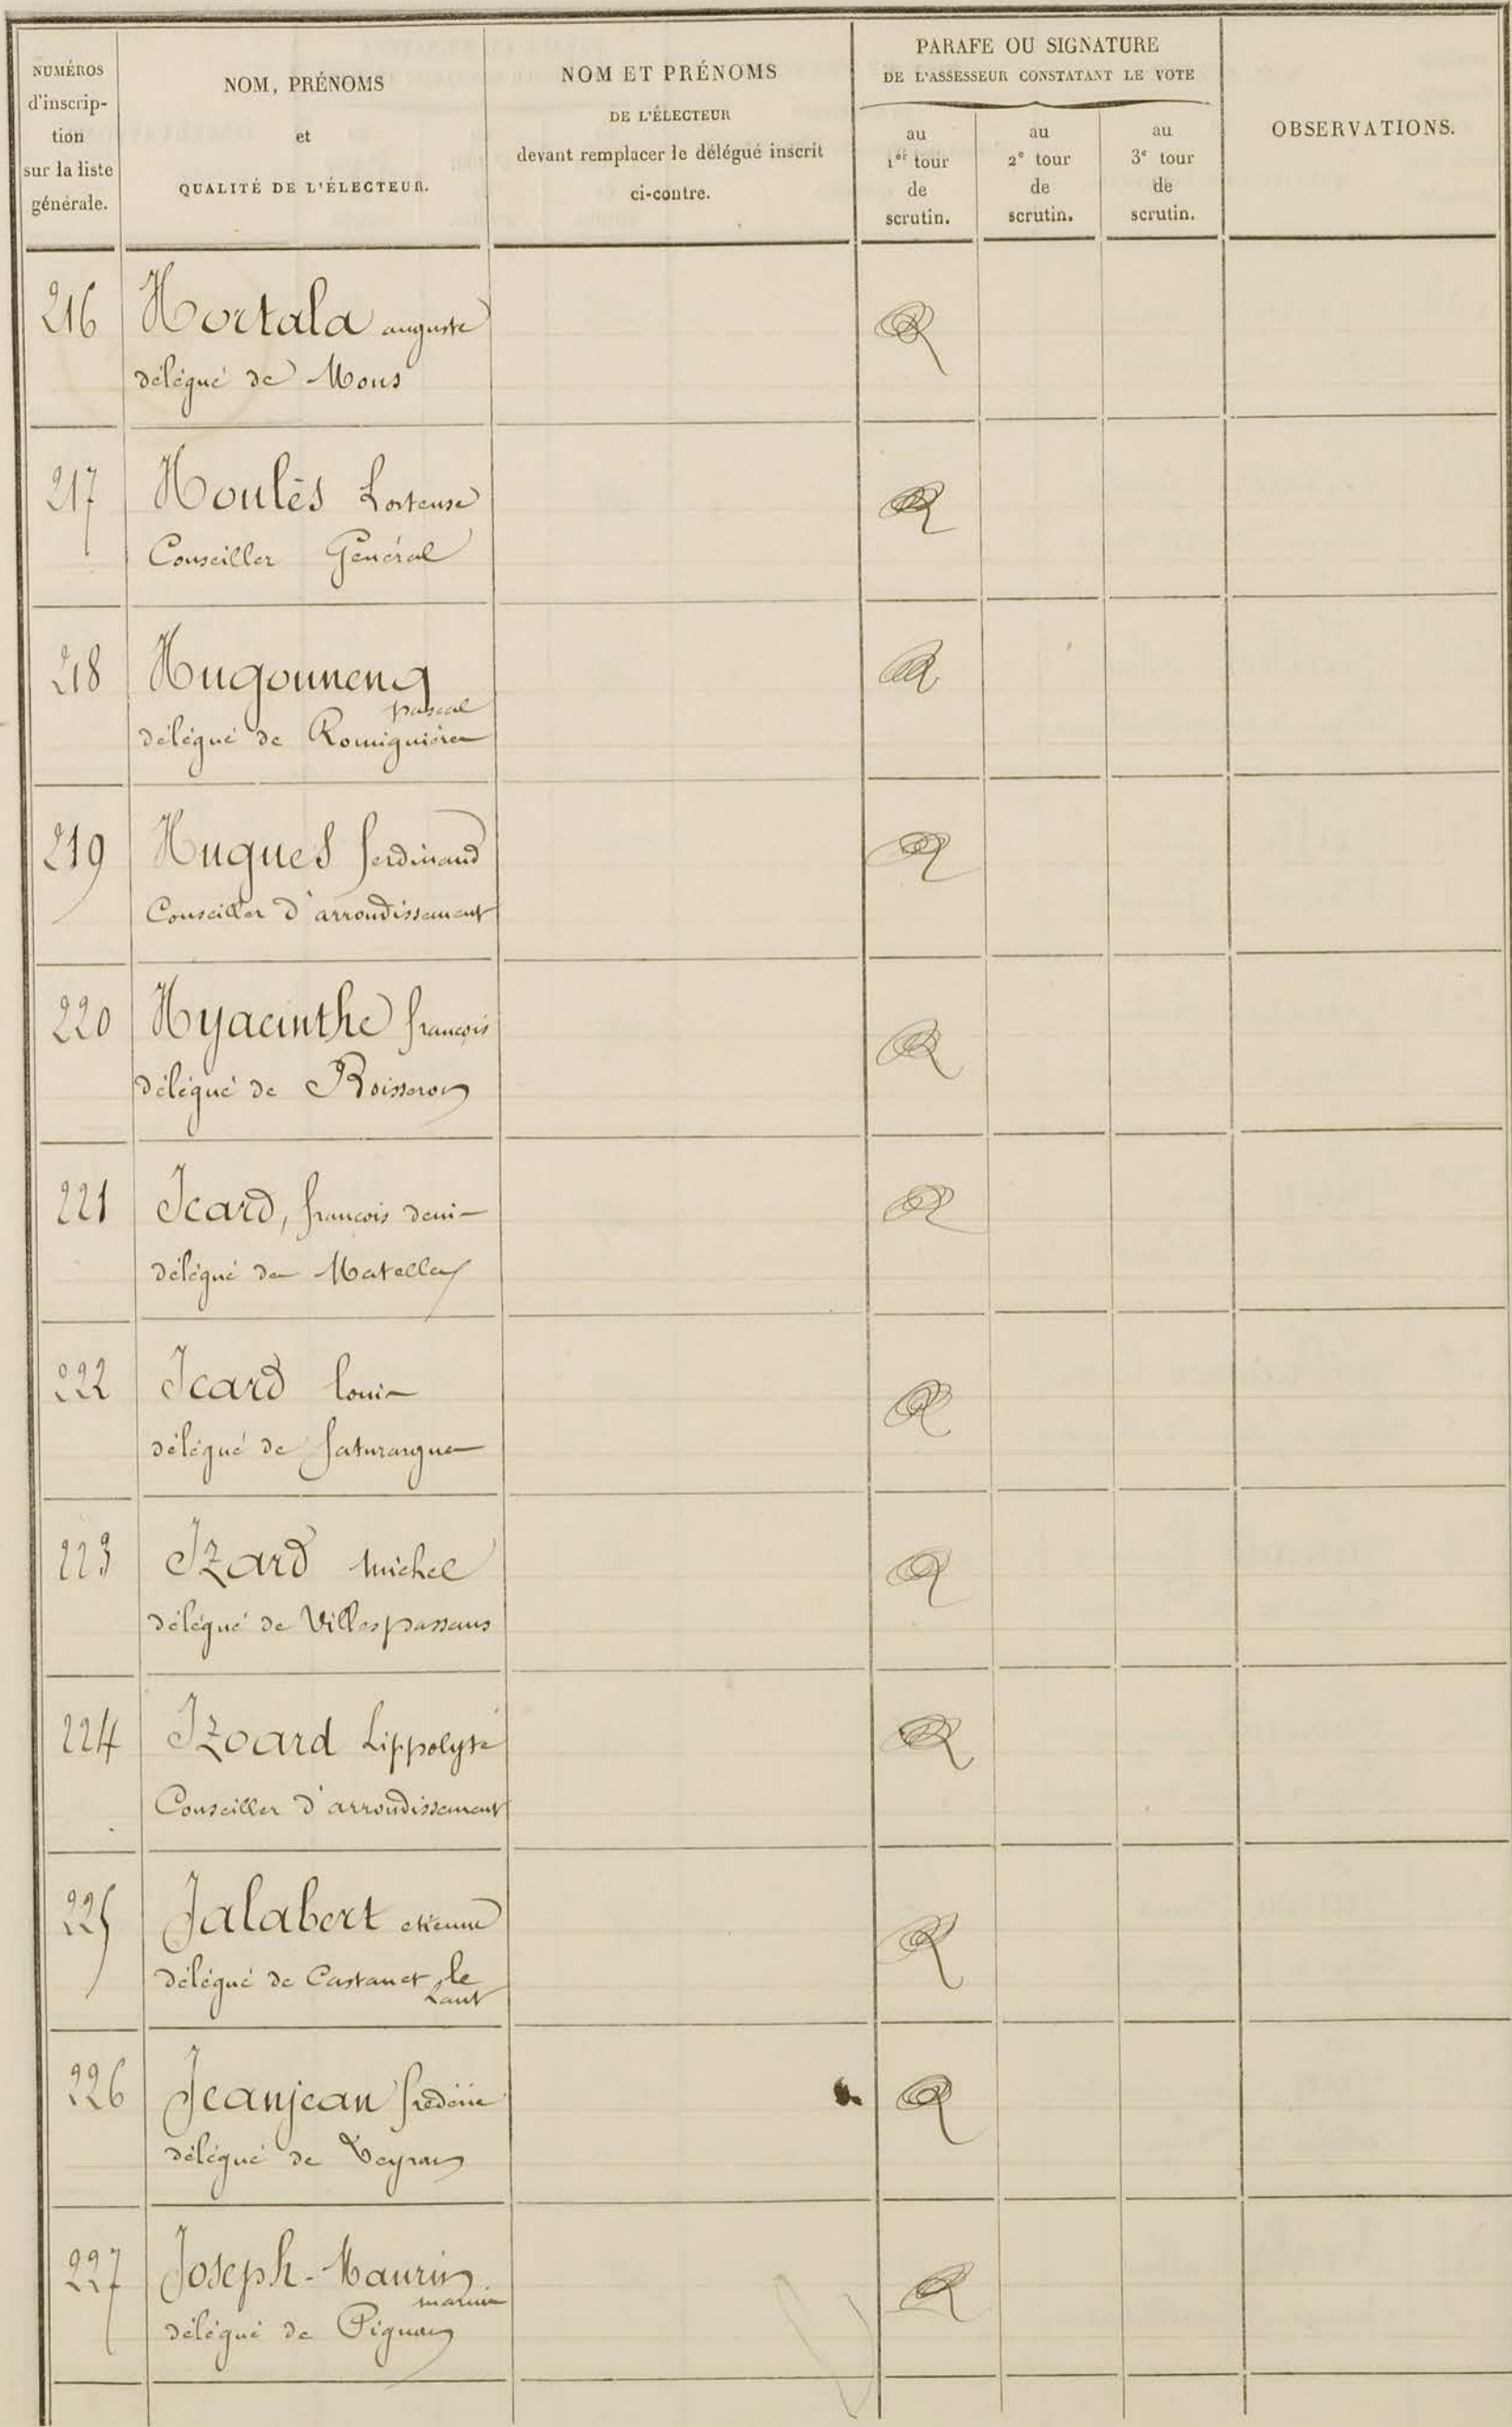 NUMÉROS
d'inscrip-
tion
sur la liste
générale.
NOM, PRÉNOMS
et
QUALITÉ DE L'ÉLECTEUR.
NOM ET PRÉNOMS
DE L'ÉLECTEUR
devant remplacer le délégué inscrit
ci-contre.
PARAFE OU SIGNATURE
DE L'ASSESSEUR CONSTATANT LE VOTE
au
1er tour
de
scrutin.
au
2e tour
de
scrutin.
au
3e tour
de
scrutin.
OBSERVATIONS.
216 Hortala auguste
délégué de Mons
217 Houlès hortense
Conseiller Général
218 Hugouneng
pascal
délégué de Romiguières
219 Hugues ferdinand
Conseiller d'arrondissement
220 Hyacinthe françois
délégué de Boisseron
221 Icard, françois denis
délégué des Matelles
222 Icard louis
délégué de Saturargues
223 Izard michel
délégué de Villespassans
224 Izoard hippolyte
Conseiller d'arrondissement
225 Jalabert etienne
délégué de Castanet le
haut
226 Jeanjean frédéric
délégué de Teyran
227 Joseph-Maurin
délégué de Pignan